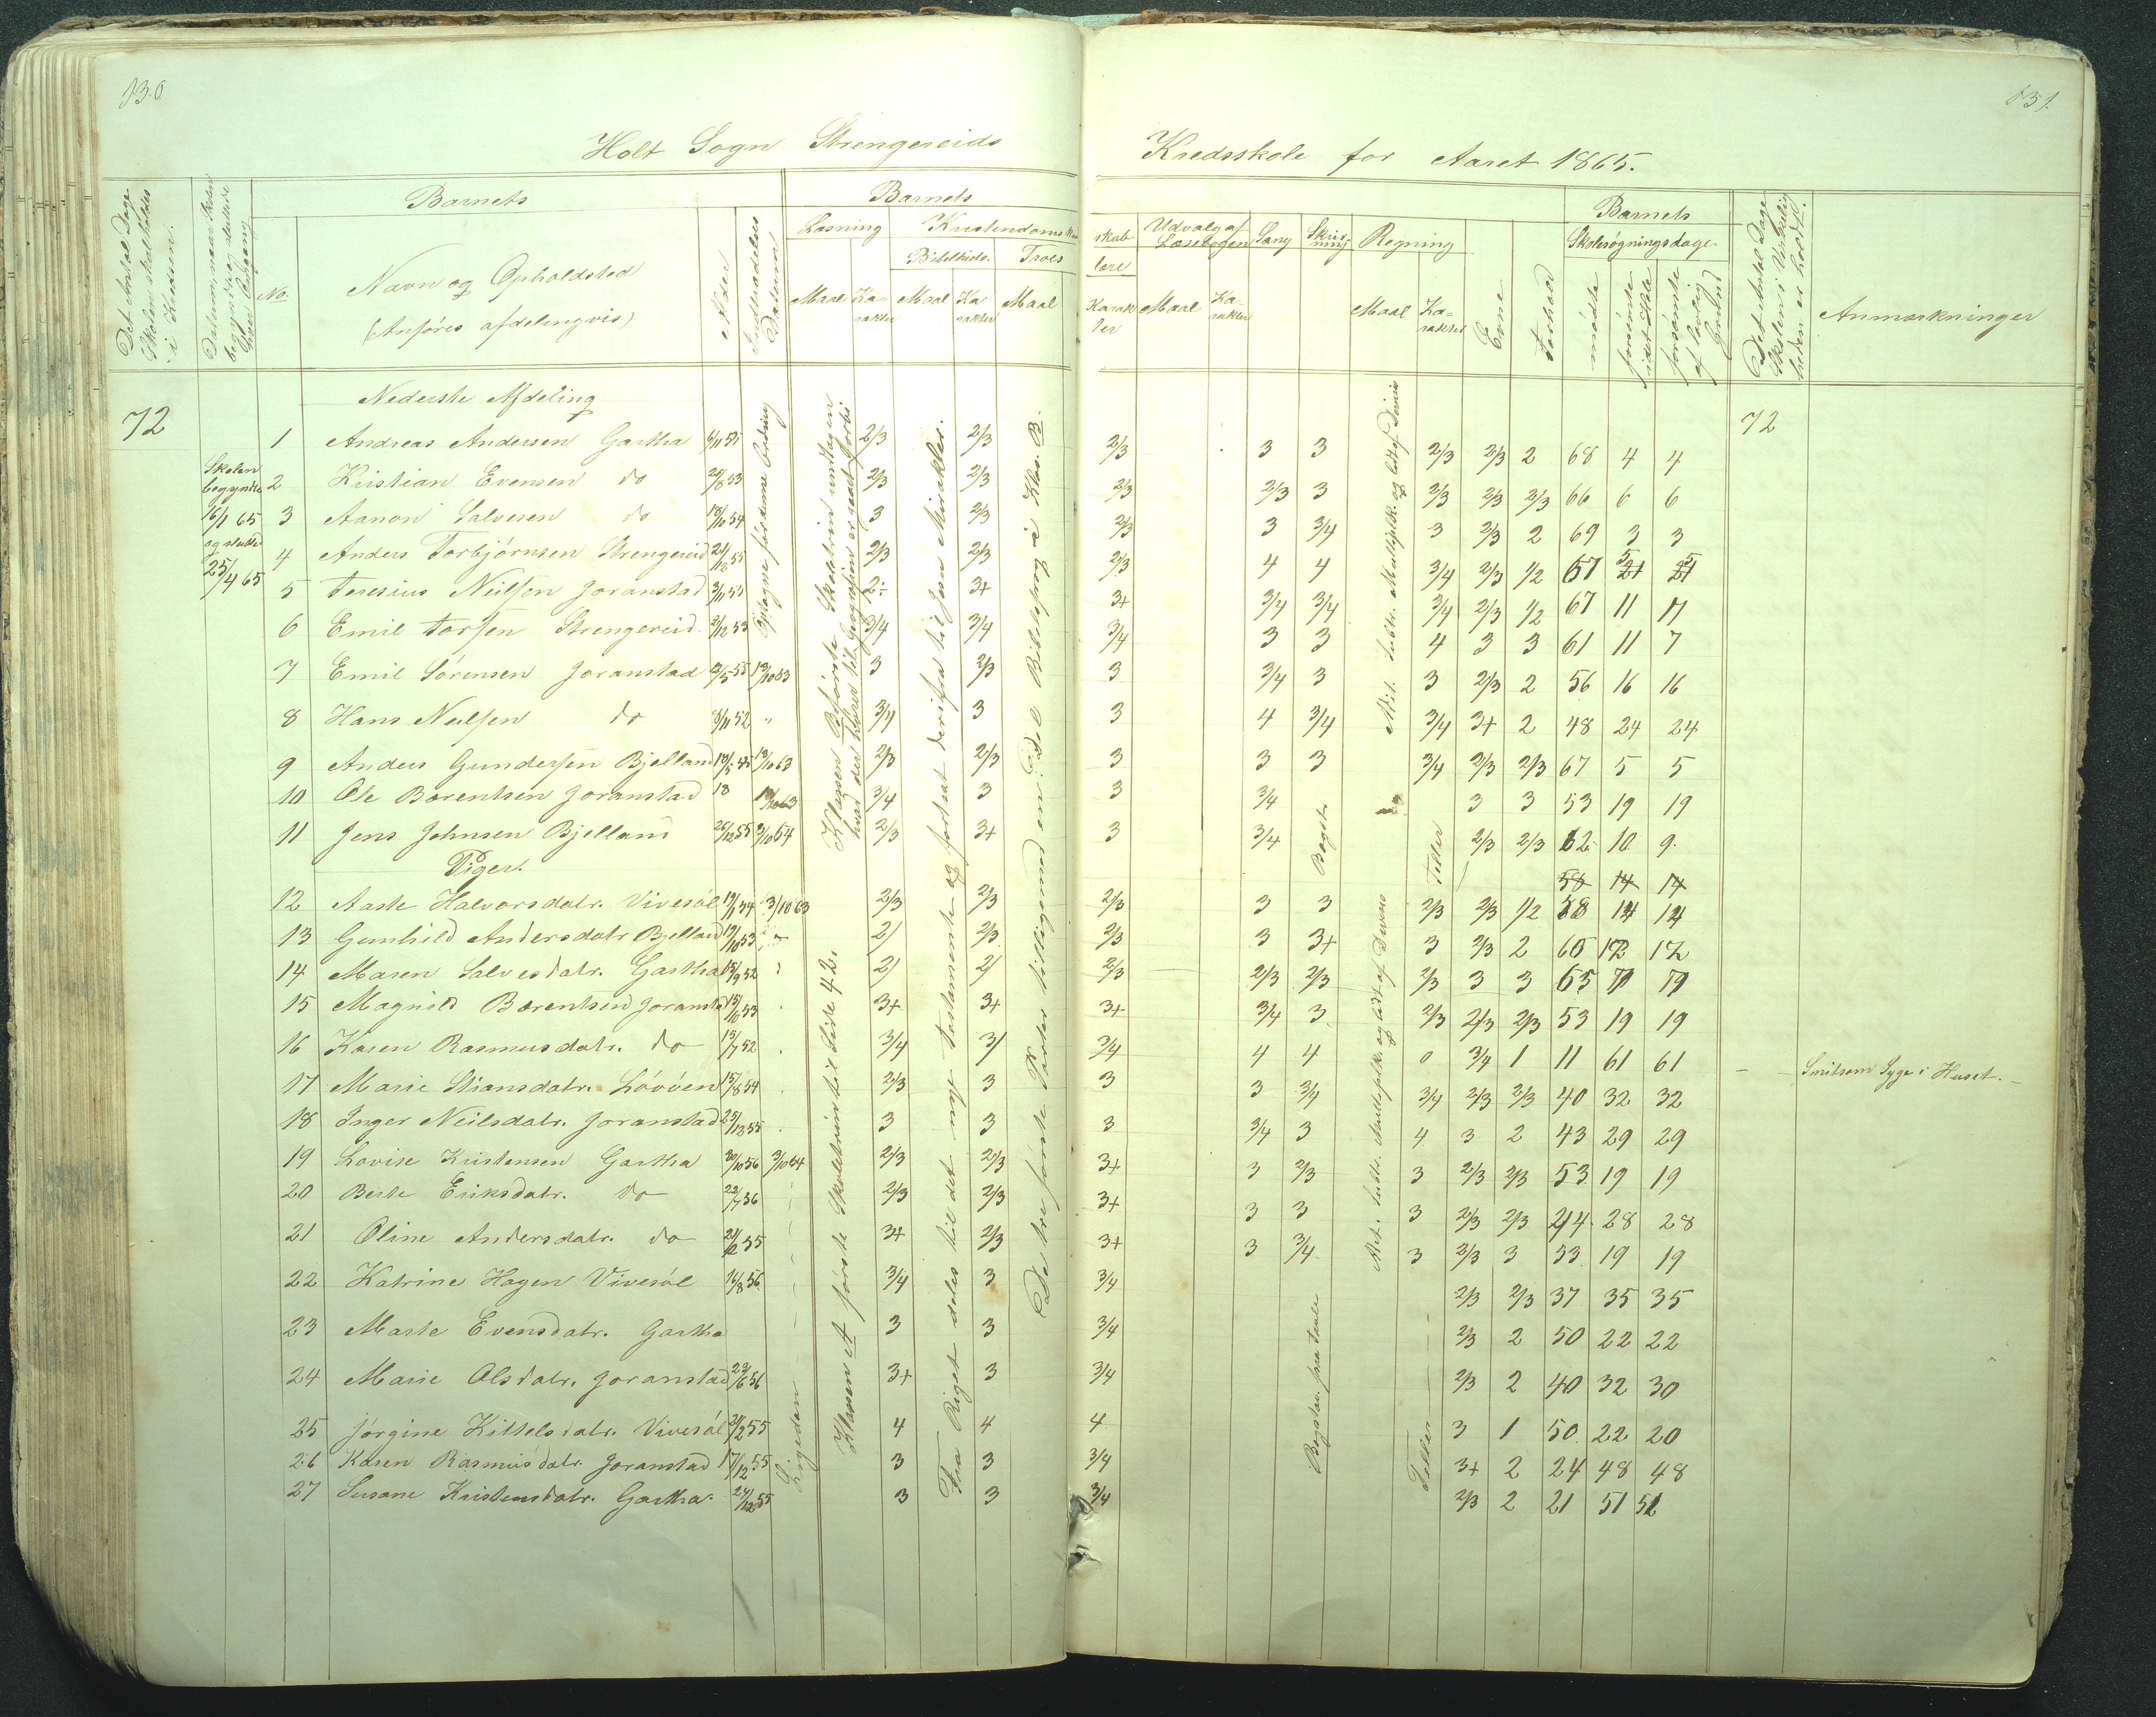 130
131.
Holt Sogn Strengereids
Kredsskole for Aaret 1865.
Det Antal Dage Skolen skal holdes i Kredsen.
Datum, naar Skolen begyndte og sluttede hver Omgang
Barnets
No.
Navn og Opholdsted
(Anføres afdelingvis)
Alder
Indtrædelses Datum
Barnets
Læsning
Kristendoms
Bibelhist.
Troes
Maal
Karakter
Maal
Karakter
Maal
skab
lære
Karakter
Udvalg af Læsebogen
Maal
Karakter
Sang
Skrivning
Regning
Maal
Karakter
Evne
Forhold
Barnets
Skolesøgningsdage
mødte
forsømte i det Hele
forsømte af lovlig Grund
Det Antal Dage Skolen i Virkeligheden er holdt.
Anmærkninger
Nederste Afdeling
72
72
Skolen
begyndte
16/1 65
og sluttede
25/4 65
1 Andreas Andersen Gartha 6/11 55 2/3 2/3 2/3 3 3 2/3 2/3 2 68 4 4
2 Kristian Evensen do 28/8 53 2/3 2/3 2/3 2/3 3 2/3 2/3 2/3 66 6 6
3 Aanon Salvesen do 18/10 54 3 2/3 2/3 3 3/4 3 2/3 2 69 3 3
4 Anders Torbjørnsen Strengereid 21/12 55 2/3 2/3 2/3 4 4 3/4 2/3 1/2 67 5 5
5 Teresius Neilsen Joranstad 3/11 53 2÷ 3+ 3+ 3/4 3/4 3/4 2/3 1/2 67 11 11
6 Emil Torsen Strengereid 2/12 53 3/4 3/4 3/4 3 3 4 3 3 61 11 7
7 Emil Sørensen Joranstad 2/5 55 19/10 63 3 2/3 3 3/4 3 3 2/3 2 56 16 16
8 Hans Neilsen do 8/11 52 " 3/4 3 3 4 3/4 3/4 3+ 2 48 24 24
9 Anders Gundersen Bjelland 19/5 55 19/10 63 2/3 2/3 3 3 3 3/4 2/3 2/3 67 5 5
10 Ole Bærentsen Joranstad 18 19/10 63 3/4 3 3 3/4 3 3 53 19 19
11 Jens Johnsen Bjelland 26/12 55 3/10 64 2/3 3+ 3 3/4 2/3 2/3 62 10 9
Piger.
58 14 14
12 Aaste Halvorsdatr. Vivesøl 19/1 54 3/10 63 2/3 2/3 2/3 3 3 2/3 2/3 1/2 58 14 14
13 Gunhild Andersdatr Bjelland 19/10 53 2/ 2/3 2/3 3 3+ 3 2/3 2 60 12 12
14 Maren Salvesdatr. Gartha 15/9 52 2/ 2/ 2/3 2/3 2/3 2/3 3 3
15 Magnild Bærentsen Joranstad 3+ 3+ 3+ 3/4 3 2/3 2/3 2/3 53 19 19
16 Karen Rasmusdatr. do 13/7 52 3/4 3/ 3/4 4 4 0 3/4 1 11 61 61
Smitsom Syge i Huset.
17 Marie Stiansdatr. Løvøen 15/8 54 2/3 3 3 3 3/4 3/4 2/3 2/3 40 32 32
18 Inger Neilsdatr. Joranstad 25/12 55 3 3 3 3/4 3 4 3 2 43 29 29
19 Lovise Kristensen Gartha 30/10 56 3/10 64 2/3 2/3 3+ 3 2/3 3 2/3 2/3 53 19 19
20 Berte Eriksdatr. do 22/7 56 2/3 2/3 3+ 3 3 3 2/3 2/3 44 28 28
21 Oline Andersdatr. do 3+ 2/3 3+ 3 3/4 3 2/3 3 53 19 19
22 Katrine Hagen Vivesøl 16/8 56 3/4 3 3/4 2/3 2/3 37 35 35
23 Marte Evensdatr. Gartha 3 3 3/4 2/3 2 50 22 22
24 Marie Olsdatr. Joranstad 29/6 56 3+ 3 3/4 2/3 2 40 32 30
25 Jørgine Kittelsdatr. Vivesøl 21/2 55 4 4 4 3 1 50 22 20
26 Karen Rasmusdatr. Joranstad 17/12 55 3 3 3/4 3+ 2 24 48 48
27 Susane Kristensdatr. Gartha. 24/12 55 3 3 3/4 2/3 2 21 51 51
Optagne før denne Ordning
Ligedan
Klassen B første Skoletrin undtagen
hvad der hører til Geografien er gaaet forbi
Klassen A første Skoletrin til Side 42.
Fra Riget deles til det nye Testamente og fortsat derifra til Jesu Mirakler.
De tre første Parter tilligemed en Del Bibelsprog i Klas. B.
Adit. Subtr. Multiplk. og lidt af Division
Adit. Subtr. Multiplk. og lidt af Division
Bogst.
Teller
Bogstav. paa Tavle
Teller